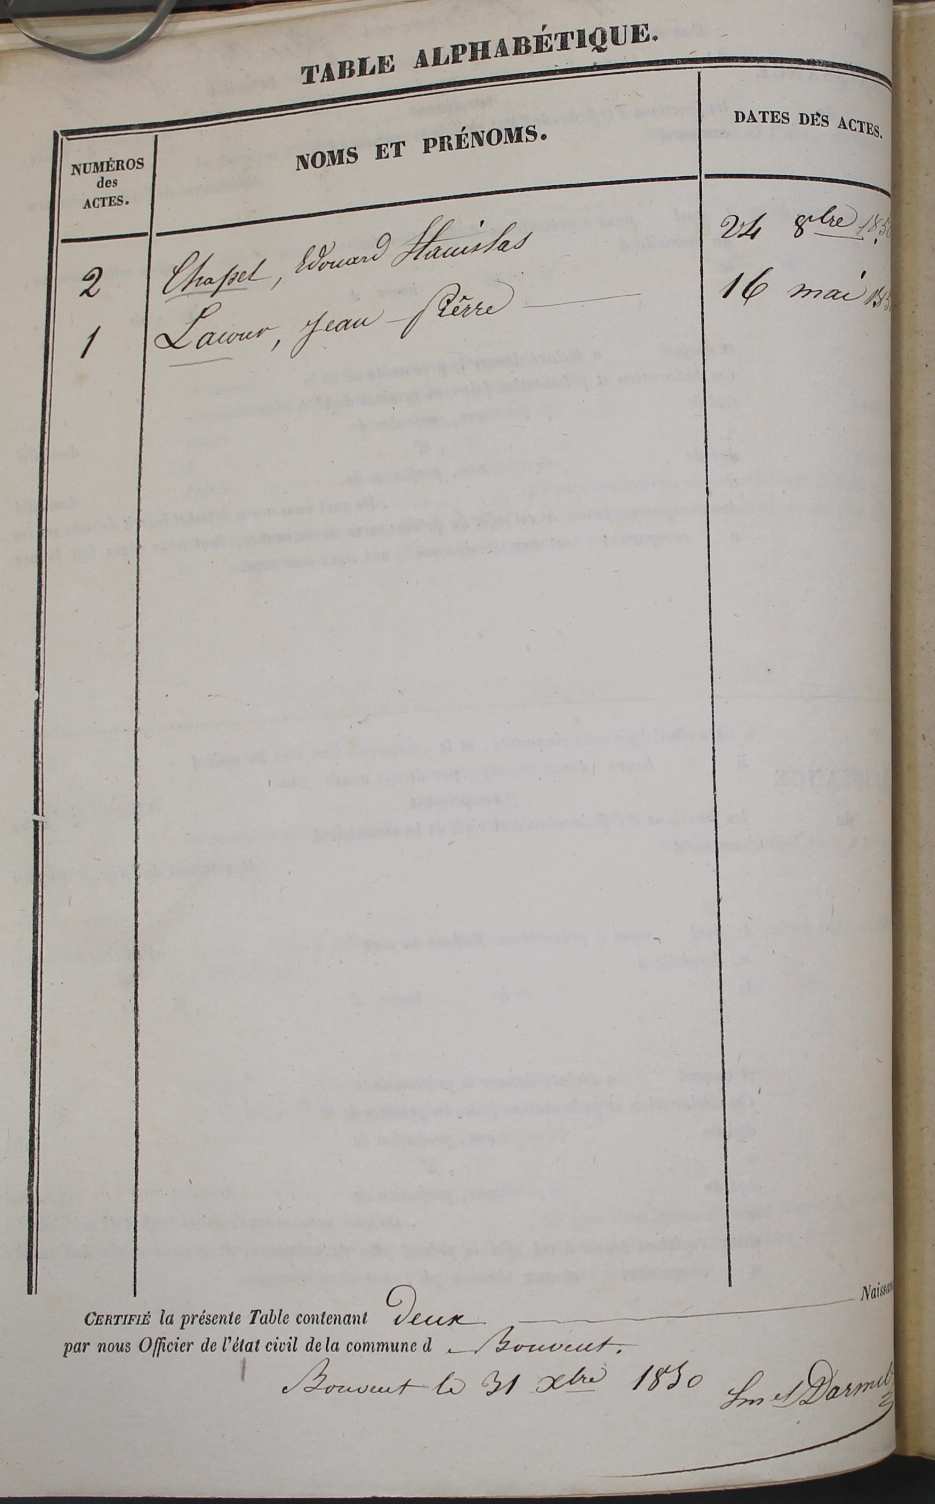 TABLE ALPHABÉTIQUE.
NUMÉROS
des
ACTES.
NOMS ET PRÉNOMS.
DATES DES ACTES.
2 Chapel, Edouard Stanislas 24 8bre 1850
1 Lacour, Jean-Pierre 16 mai
CERTIFIÉ la présente Table contenant deux Naissan
par nous Officier de l'état civil de la commune d Bouvent.
Bouvent le 31 xbre 1850